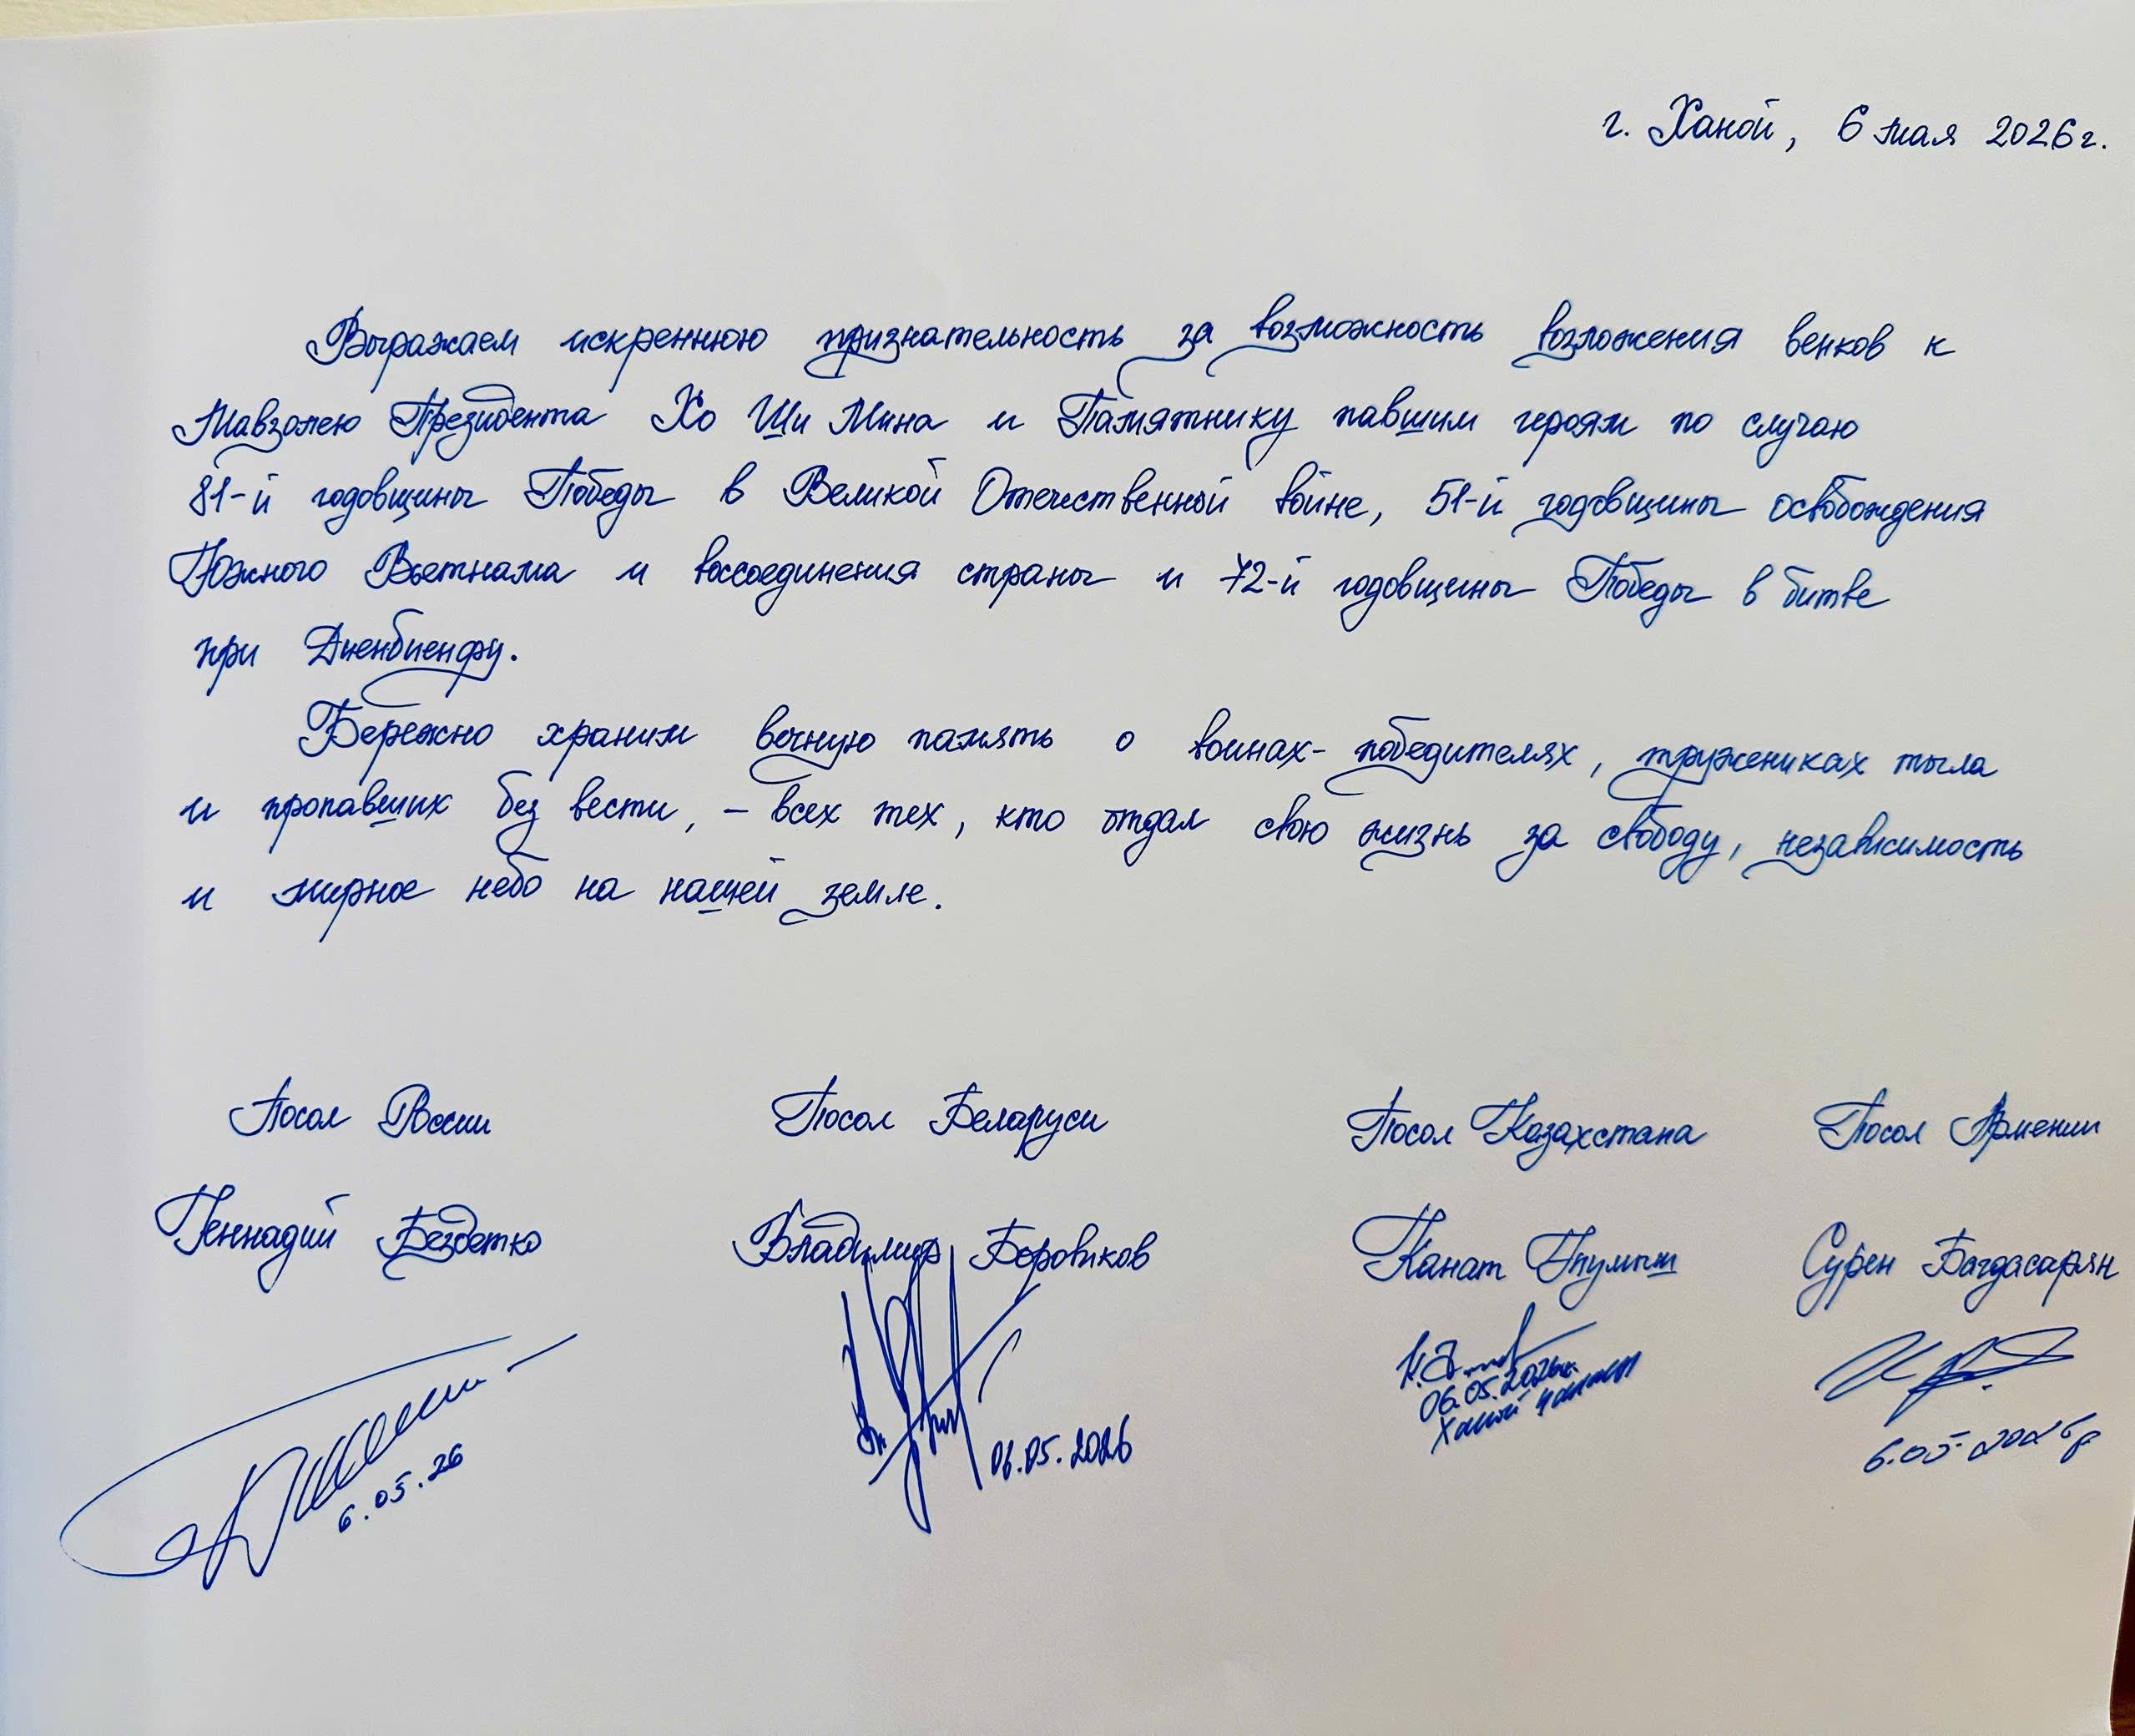 г. Ханой, 6 мая 2026г.
Выражаем искреннюю признательность за возможность возложения венков к
Мавзолею Президента Хо Ши Мина и Памятнику павшим героям по случаю
81-й годовщины Победы в Великой Отечественной войне, 51-й годовщины освобождения
Южного Вьетнама и воссоединения страны и 72-й годовщины Победы в битве
при Дьенбиенфу.
Бережно храним вечную память о воинах-победителях, тружениках тыла
и пропавших без вести, – всех тех, кто отдал свою жизнь за свободу, независимость
и мирное небо на нашей земле.
Посол России Посол Беларуси Посол Казахстана Посол Армении
Геннадий Бездетко Владимир Боровиков Канат Тумыш Сурен Багдасарян
6.05.26 06.05.2026 06.05.2026г. 6.05.2026г
Ханой